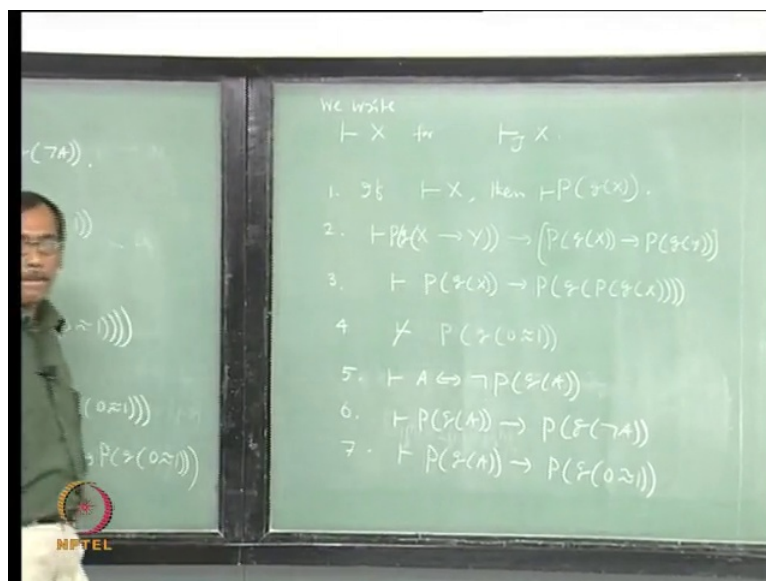 (¬A)).
1))
0≈1))))
(0≈1)))
P(g(0≈1))
We write
⊢ X for ⊢ X.
1. If ⊢ X, then ⊢P(g(X)).
2. ⊢P(g(X → Y)) → [P(g(X)) → P(g(Y))]
3. ⊢ P(g(X)) → P(g(P(g(X))))
4 ⊬ P(g(0≈1))
5. ⊢ A ⇔ ¬P(g(A))
6. ⊢ P(g(A)) → P(g(¬A))
7. ⊢ P(g(A)) → P(g(0≈1))
NPTEL